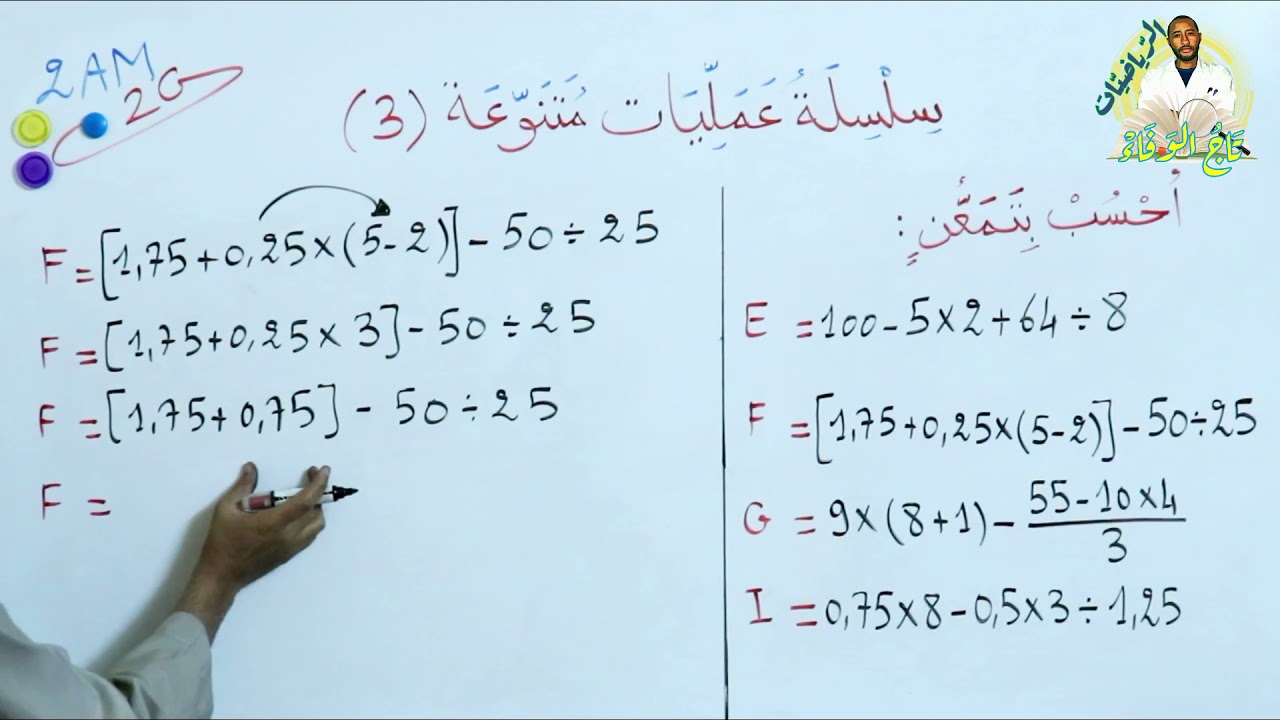 2AM
2G
سِلْسِلَةُ عَمَلِّيَات مُتَنَوِّعَة (3)
الرّياضيّات
تَاجُ الوَفَاءْ
أُحْسُبْ بِتَمَعُّنٍ :
E = 100 - 5 × 2 + 64 ÷ 8
F = [1,75 + 0,25 × (5 - 2)] - 50 ÷ 25
G = 9 × (8 + 1) - \frac{55 - 10 × 4}{3}
I = 0,75 × 8 - 0,5 × 3 ÷ 1,25
F = [1,75 + 0,25 × (5 - 2)] - 50 ÷ 25
F = [1,75 + 0,25 × 3] - 50 ÷ 25
F = [1,75 + 0,75] - 50 ÷ 25
F =